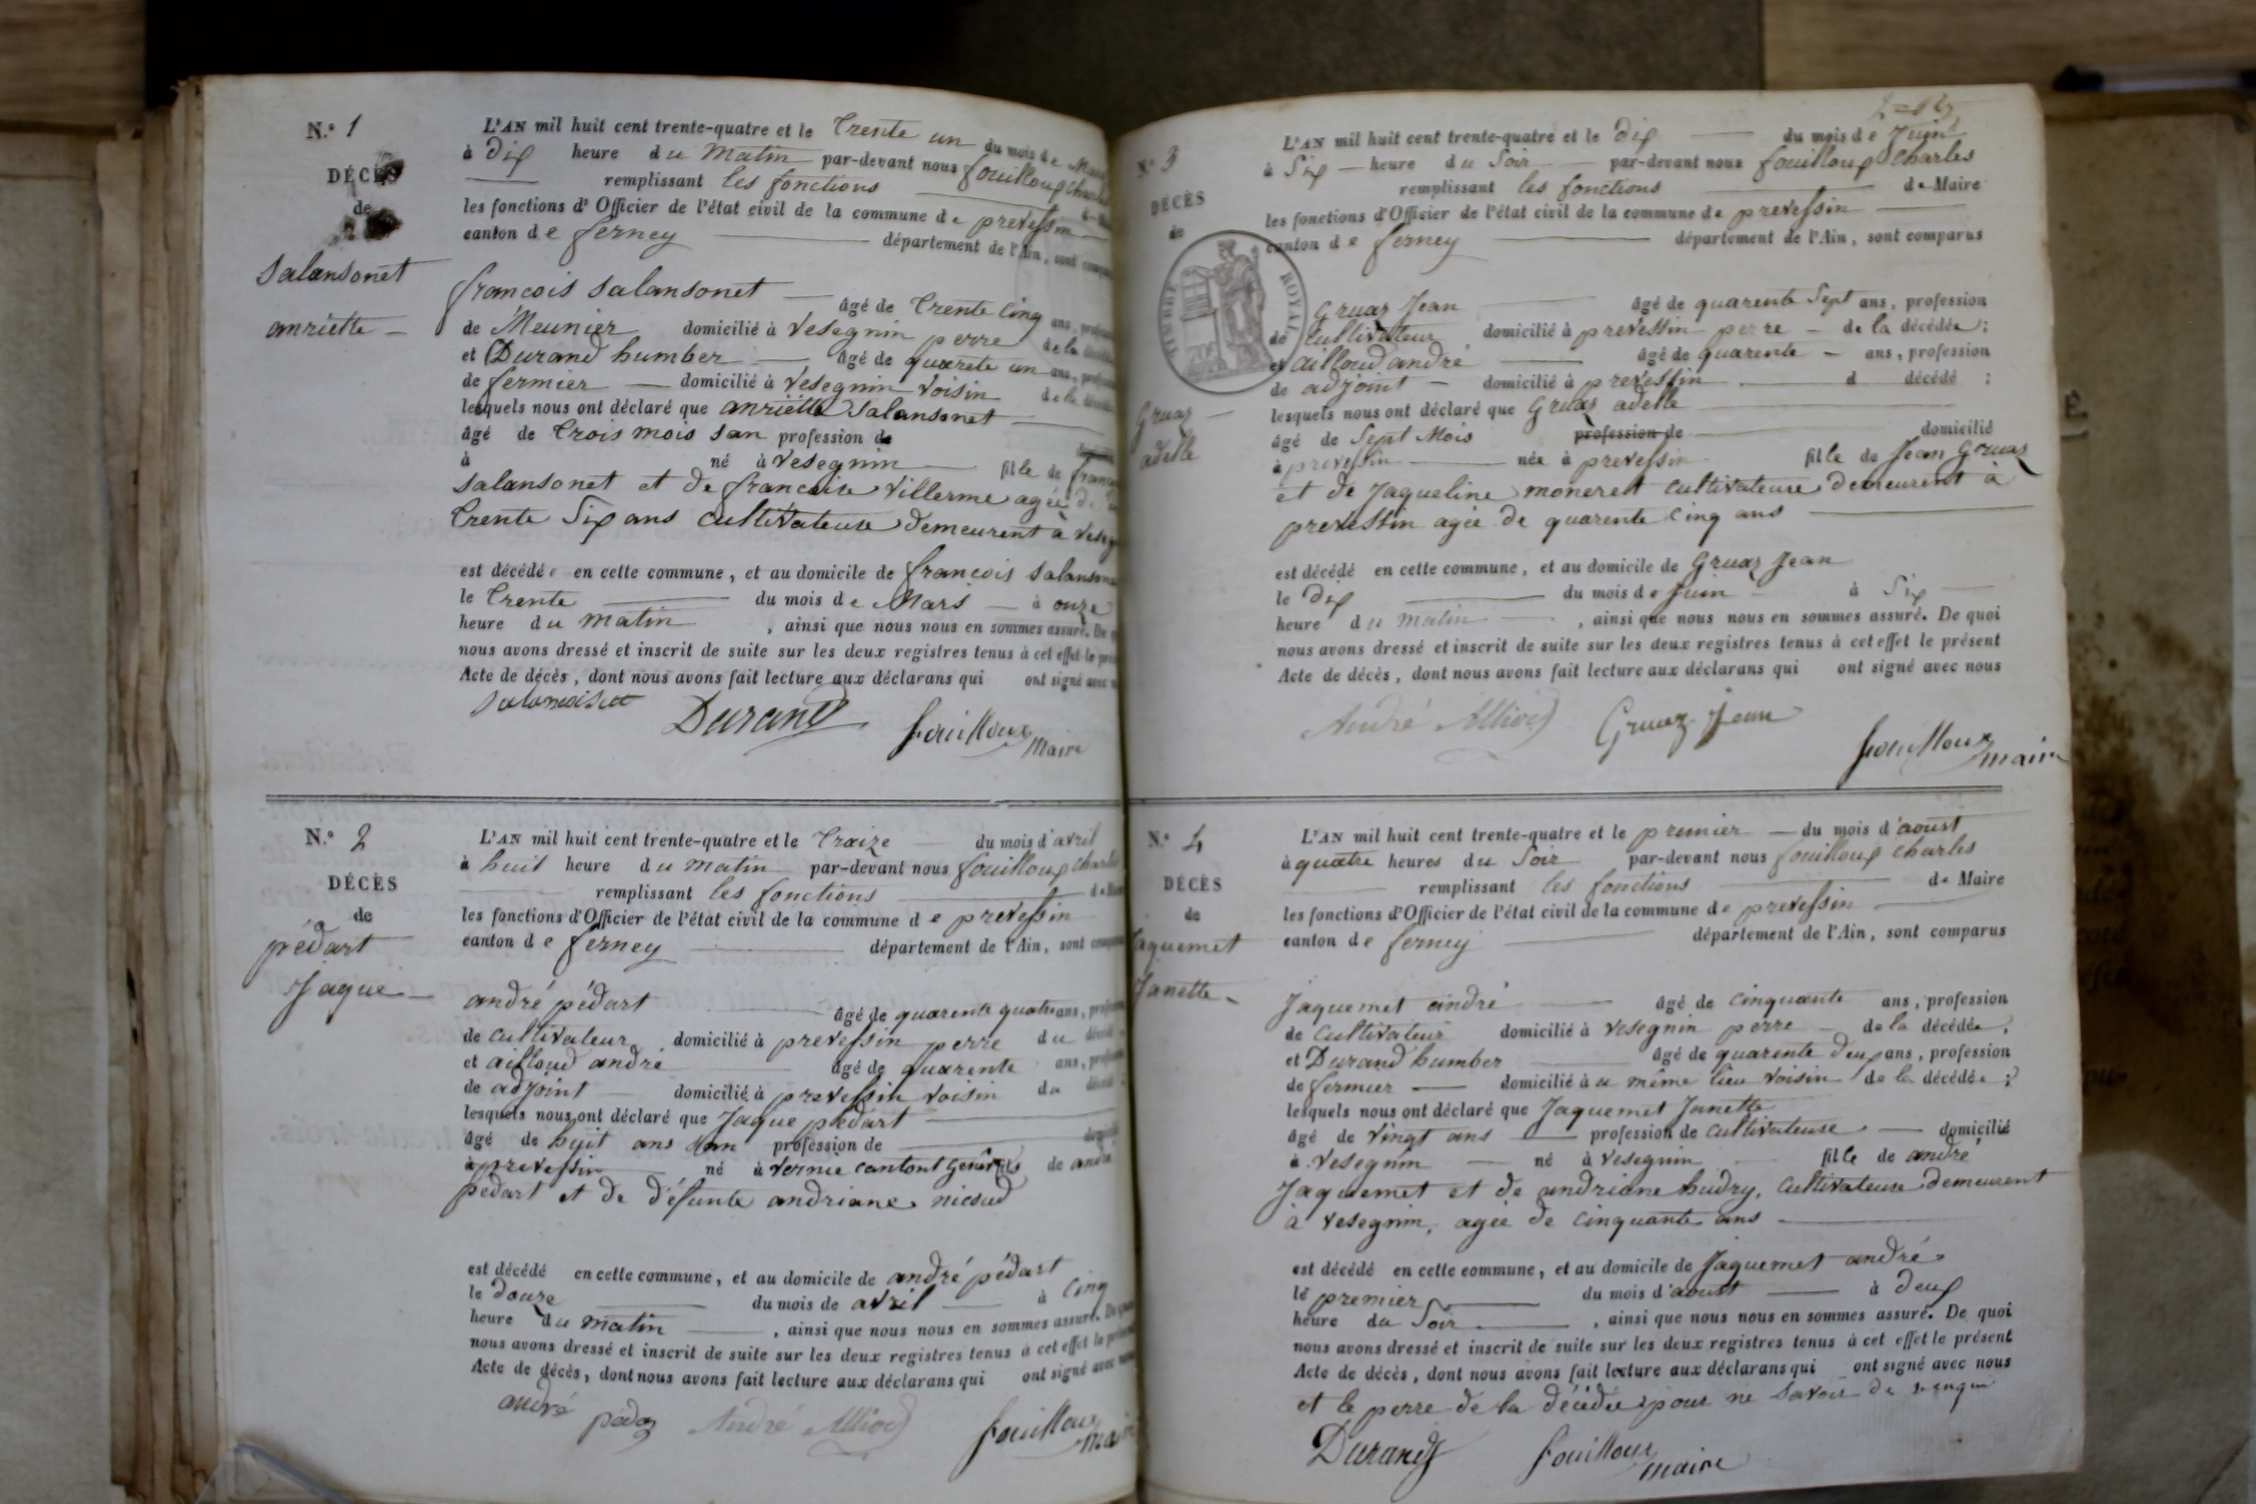 N.° 1
DÉCÈS
de
Salansonet
anriette
L'AN mil huit cent trente-quatre et le Trente un du mois de
à Dix heure du Matin par-devant nous fouilloux
remplissant les fonctions
les fonctions d'Officier de l'état civil de la commune de prevessin
canton de ferney département de l'Ain, sont
francois Salansonet âgé de Trente Cinq ans,
de Meunier domicilié à Vesegnin perre de la
et Durand humber âgé de quarete un ans,
de fermier domicilié à Vesegnin Voisin de la
lesquels nous ont déclaré que anriette Salansonet
âgé de Trois mois San profession de
à né à Vesegnin fille de
Salansonet et de francoise Villerme agée de
Trente Six ans Cultivateuse demeurent à
est décédée en cette commune, et au domicile de francois
le Trente du mois de Mars à onze
heure du matin, ainsi que nous nous en sommes assuré. De
nous avons dressé et inscrit de suite sur les deux registres tenus à cet effet le
Acte de décès, dont nous avons fait lecture aux déclarans qui ont signé avec
Durand fouilloux Maire
N.° 2
DÉCÈS
de
pédart
Jaque
L'AN mil huit cent trente-quatre et le Traize du mois d'avril
à huit heure du matin par-devant nous fouilloux
remplissant les fonctions de
les fonctions d'Officier de l'état civil de la commune de prevessin
canton de ferney département de l'Ain, sont
andré pédart âgé de quarente quatre ans,
de cultivateur domicilié à prevessin perre du
etailloud andré âgé de quarente ans,
de adjoint domicilié à prevessin voisin du
lesquels nous ont déclaré que Jaque pédart
âgé de huit ans profession de
à prevessin né à Vernie cantont de
pédart et de défunte andriane
est décédé en cette commune, et au domicile de andré pédart
le Douze du mois de avril à Cinq
heure du matin, ainsi que nous nous en sommes assuré. De
nous avons dressé et inscrit de suite sur les deux registres tenus à cet effet le
Acte de décès, dont nous avons fait lecture aux déclarans qui ont signé avec
andré André Alliod fouilloux
N.° 3
DÉCÈS
de
Gruaz
adelle
TIMBRE ROYAL
L'AN mil huit cent trente-quatre et le Dix du mois de Juin
à Six heure du Soir par-devant nous fouilloux Charles
remplissant les fonctions de Maire
les fonctions d'Officier de l'état civil de la commune de prevessin
canton de ferney département de l'Ain, sont comparus
Gruaz Jean âgé de quarente Sept ans, profession
de Cultivateur domicilié à prevessin perre de la décédée;
et ailloud andré âgé de quarente ans, profession
de adjoint domicilié à prevessin d décédé;
lesquels nous ont déclaré que Gruaz adelle
âgé de Sept Mois profession de domicilié
à prevessin née à prevessin fille de Jean Gruaz
et de Jaqueline moneret cultivateuse demeurent à
prevessin agée de quarente Cinq ans
est décédé en cette commune, et au domicile de Gruaz Jean
le Dix du mois de Juin à Six
heure du matin, ainsi que nous nous en sommes assuré. De quoi
nous avons dressé et inscrit de suite sur les deux registres tenus à cet effet le présent
Acte de décès, dont nous avons fait lecture aux déclarans qui ont signé avec nous
André Alliod Gruaz Jean fouilloux maire
N.° 4
DÉCÈS
de
Jaquemet
Janette
L'AN mil huit cent trente-quatre et le premier du mois d'aoust
à quatre heures du Soir par-devant nous fouilloux charles
remplissant les fonctions de Maire
les fonctions d'Officier de l'état civil de la commune de prevessin
canton de ferney département de l'Ain, sont comparus
Jaquemet andré âgé de cinquante ans, profession
de Cultivateur domicilié à vesegnin perre de la décédée;
et Durand humber âgé de quarente deux ans, profession
de fermier domicilié à u même lieu voisin de la décédée;
lesquels nous ont déclaré que Jaquemet Janette
âgé de vingt ans profession de cultivateuse domicilié
à Vesegnin né à Vesegnin fille de andré
Jaquemet et de andriane hudry, Cultivateuse demeurent
à Vesegnin, agée de cinquante ans
est décédé en cette commune, et au domicile de Jaquemet andré
le premier du mois d'aoust à deux
heure du Soir, ainsi que nous nous en sommes assuré. De quoi
nous avons dressé et inscrit de suite sur les deux registres tenus à cet effet le présent
Acte de décès, dont nous avons fait lecture aux déclarans qui ont signé avec nous
et le perre de la décédée pour ne savoir de
Durand fouilloux maire